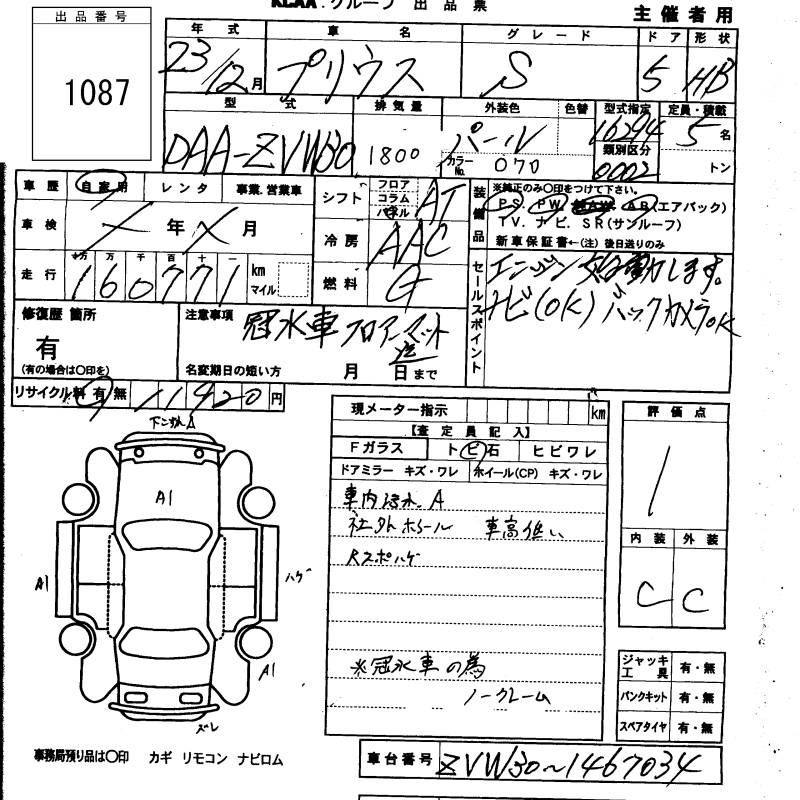 KCAA.グループ 出品票
主催者用
出品番号
1087
年式 車名 グレード ドア 形状
23/12月 プリウス S 5 HB
型式 排気量 外装色 色替 型式指定 定員・積載
DAA-ZVW30 1800 パール 16294 5名
類別区分
カラーNo. 070 0002 トン
車歴 自家用 レンタ 事業.営業車
車検 年 月
走行 十万 万 千 百 十 一
160771 km
マイル
シフト フロア コラム パネル AT
冷房 AAC
燃料 G
装備品
※純正のみ〇印をつけて下さい。
PS. PW. AW. AB(エアバック)
TV. ナビ. SR(サンルーフ)
新車保証書←(注) 後日送りのみ
セールスポイント
エンジン始動します。
ナビ(OK) バックカメラOK
修復歴 箇所
有
(有の場合は〇印を)
注意事項
冠水車 フロアーマット
迄
名変期日の短い方 月 日まで
リサイクル料 有 無 11920円
現メーター指示 km
【査定員記入】
Fガラス トビ石 ヒビワレ
ドアミラー キズ・ワレ ホイール(CP) キズ・ワレ
車内汚れ. A
社外ホイール 車高低い
Rスポハゲ
※冠水車の為
ノークレーム
評価点
1
内装 外装
C C
下ニサルA
A1
A1
ハゲ
A1
ズレ
ジャッキ工具 有・無
パンクキット 有・無
スペアタイヤ 有・無
事務局預り品は〇印 カギ リモコン ナビロム
車台番号 ZVW30~1467034